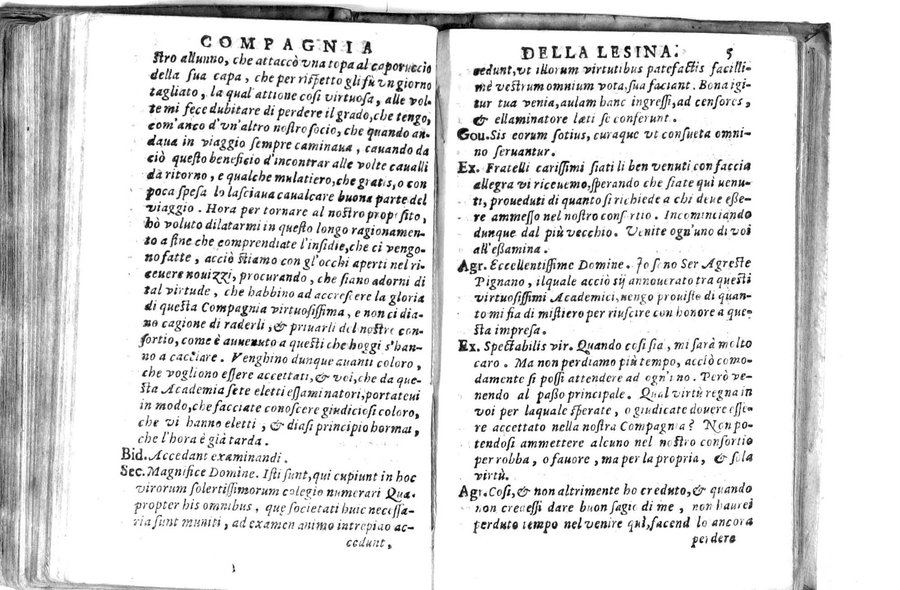 COMPAGNIA
stro allunno, che attaccò vna topa al caporuccio
della sua capa, che per rispetto gli fù vn giorno
tagliato, la qual attione così virtuosa, alle vol-
te mi fece dubitare di perdere il grado, che tengo,
com'anco d'vn'altro nostro socio, che quando an-
daua in viaggio sempre caminaua, cauando da
ciò questo beneficio d'incontrar alle volte caualli
da ritorno, e qualche mulatiero, che gratis, o con
poca spesa lo lasciaua caualcare buona parte del
viaggio. Hora per tornar al nostro proposito,
hò voluto dilatarmi in questo longo ragionamen-
to a fine che comprendiate l'insidie, che ci vengo-
no fatte, acciò stiamo con gl'occhi aperti nel ri-
ceuere nouizzi, procurando, che siano adorni di
tal virtude, che habbino ad accrescere la gloria
di questa Compagnia virtuosissima, e non ci dia-
no cagione di raderli, & priuarli del nostro con-
sortio, come è auuenuto a questi che hoggi s'han-
no a cacciare. Venghino dunque auanti coloro,
che vogliono essere accettati, & voi, che da que-
sta Academia sete eletti essaminatori, portateui
in modo, che facciate conoscere giudiciosi coloro,
che vi hanno eletti, & diasi principio hormai,
che l'hora è già tarda.
Bid. Accedant examinandi.
Sec. Magnifice Domine. Isti sunt, qui cupiunt in hoc
virorum solertissimorum colegio numerari Qua-
propter his omnibus, que societati huic necessa-
ria sunt muniti, ad examen animo intrepido ac-
cedunt,
DELLA LESINA. 5
cedunt, vt illorum virtutibus patefactis facilli-
mè vestrum omnium vota, sua faciant. Bona igi-
tur tua venia, aulam hanc ingressi, ad censores,
& ellaminatore læti se conferunt.
Gou. Sis eorum sotius, curaque vt consueta omni-
no seruantur.
Ex. Fratelli carissimi siati li ben venuti con faccia
allegra vi riceuemo, sperando che siate qui uenu-
ti, proueduti di quanto si richiede a chi deue esse-
re ammesso nel nostro consortio. Incominciando
dunque dal più vecchio. Venite ogn'uno di voi
all'essamina.
Agr. Eccellentissime Domine. Io sono Ser Agreste
Pignano, il quale acciò sij annouerato tra questi
virtuosissimi Academici, uengo prouisto di quan-
to mi fia di mistiero per riuscire con honore a que-
sta impresa.
Ex. Spectabilis vir. Quando così sia, mi sarà molto
caro. Ma non perdiamo più tempo, acciò como-
damente si possi attendere ad ogn'ino. Però ve-
nendo al passo principale. Qual virtù regna in
voi per laquale sperate, o giudicate douere esse-
re accettato nella nostra Compagnia? Non po-
tendosi ammettere alcuno nel nostro consortio
per robba, o fauore, ma per la propria, & sola
virtù.
Agr. Così, & non altrimente ho creduto, & quando
non credessi dare buon sagio di me, non haurei
perduto tempo nel venire quì, facendolo ancora
perdere